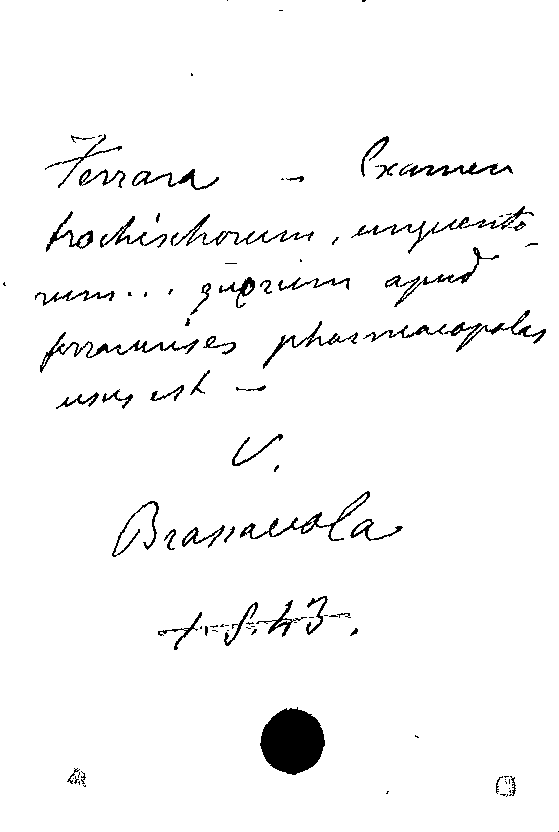 Ferrara - Examen
trochischorum, unguento-
rum... quorum apud
ferrarienses pharmacopolas
usus est -
V.
Brassavola